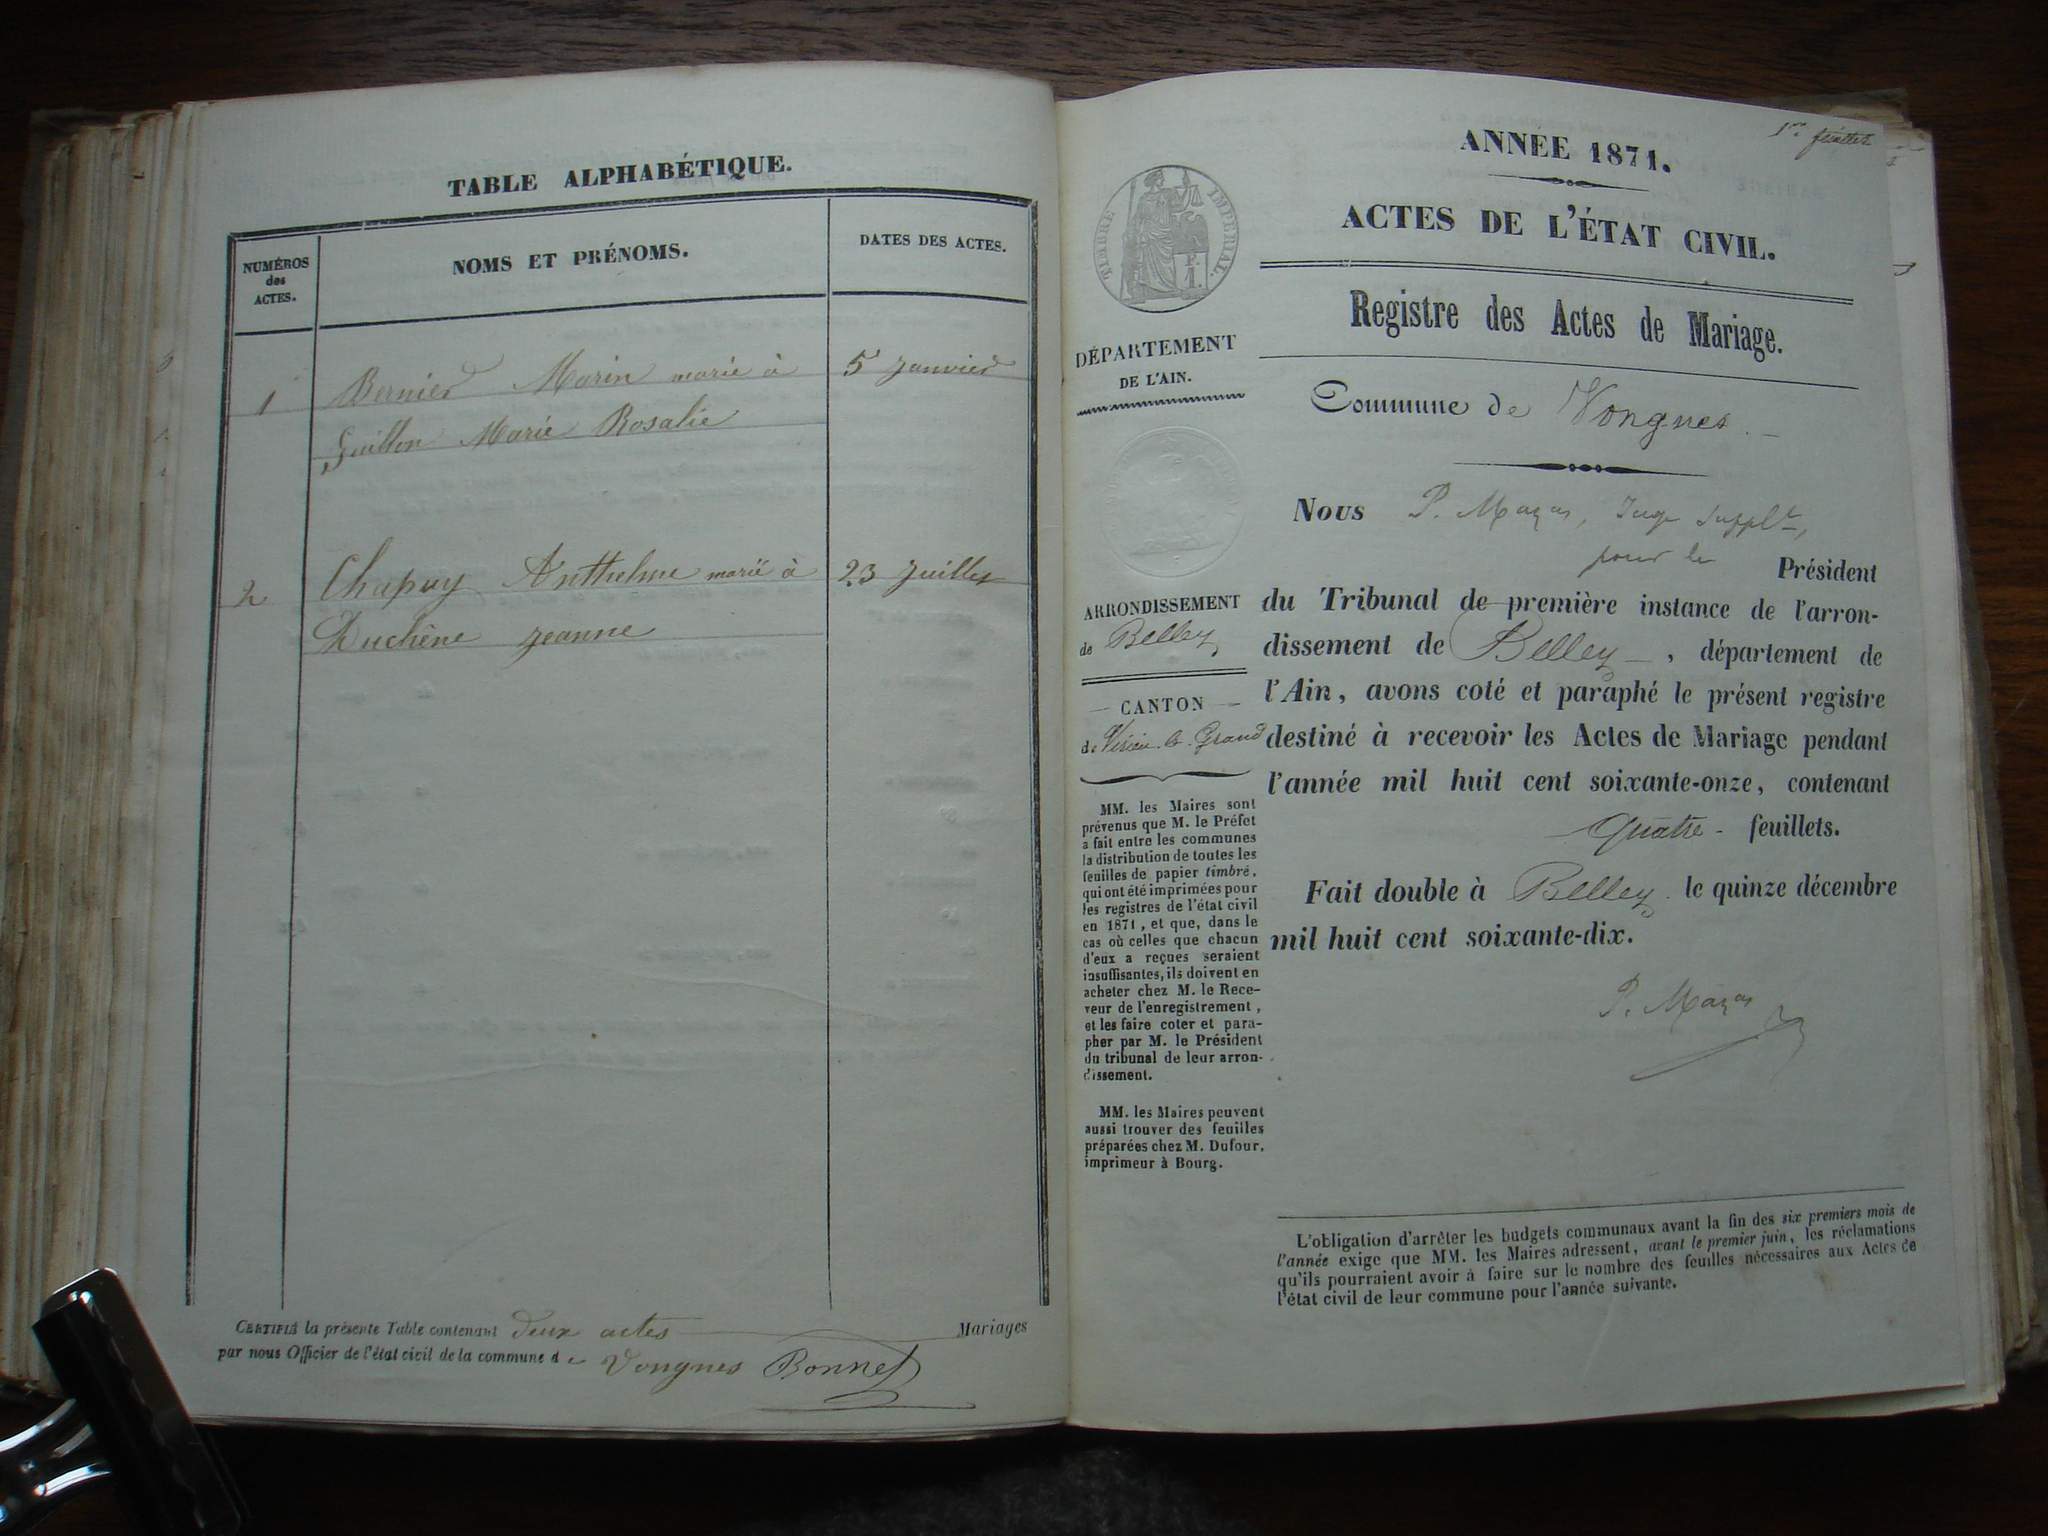 TABLE ALPHABÉTIQUE.
NUMÉROS
des
ACTES.
NOMS ET PRÉNOMS.
DATES DES ACTES.
1 Bernier Marin marié à 5 Janvier
Guillon Marie Rosalie
2 Chapuy Anthelme marié à 23 Juillet
Duchêne Jeanne
CERTIFIÉ la présente Table contenant deux actes Mariages
par nous Officier de l'état civil de la commune de Vongnes Bonnet
1er feuillet
ANNÉE 1871.
ACTES DE L'ÉTAT CIVIL.
TIMBRE IMPERIAL.
Registre des Actes de Mariage.
DÉPARTEMENT
DE L'AIN.
Commune de Vongnes.
ARRONDISSEMENT
de Belley
CANTON
de Virieu-le-Grand
MM. les Maires sont
prévenus que M. le Préfet
a fait entre les communes
la distribution de toutes les
feuilles de papier timbré,
qui ont été imprimées pour
les registres de l'état civil
en 1871, et que, dans le
cas où celles que chacun
d'eux a reçues seraient
insuffisantes, ils doivent en
acheter chez M. le Rece-
veur de l'enregistrement,
et les faire coter et para-
pher par M. le Président
du tribunal de leur arron-
dissement.
MM. les Maires peuvent
aussi trouver des feuilles
préparées chez M. Dufour,
imprimeur à Bourg.
Nous P. Mazas, Juge Supplt,
pour le Président
du Tribunal de première instance de l'arron-
dissement de Belley, département de
l'Ain, avons coté et paraphé le présent registre
destiné à recevoir les Actes de Mariage pendant
l'année mil huit cent soixante-onze, contenant
Quatre feuillets.
Fait double à Belley le quinze décembre
mil huit cent soixante-dix.
P. Mazas
L'obligation d'arrêter les budgets communaux avant la fin des six premiers mois de
l'année exige que MM. les Maires adressent, avant le premier juin, les réclamations
qu'ils pourraient avoir à faire sur le nombre des feuilles nécessaires aux Actes de
l'état civil de leur commune pour l'année suivante.